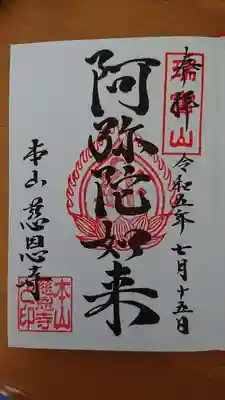 奉拝
瑞宝山
令和五年七月十五日
阿弥陀如来
本山 慈恩寺
本山
慈恩寺
之印